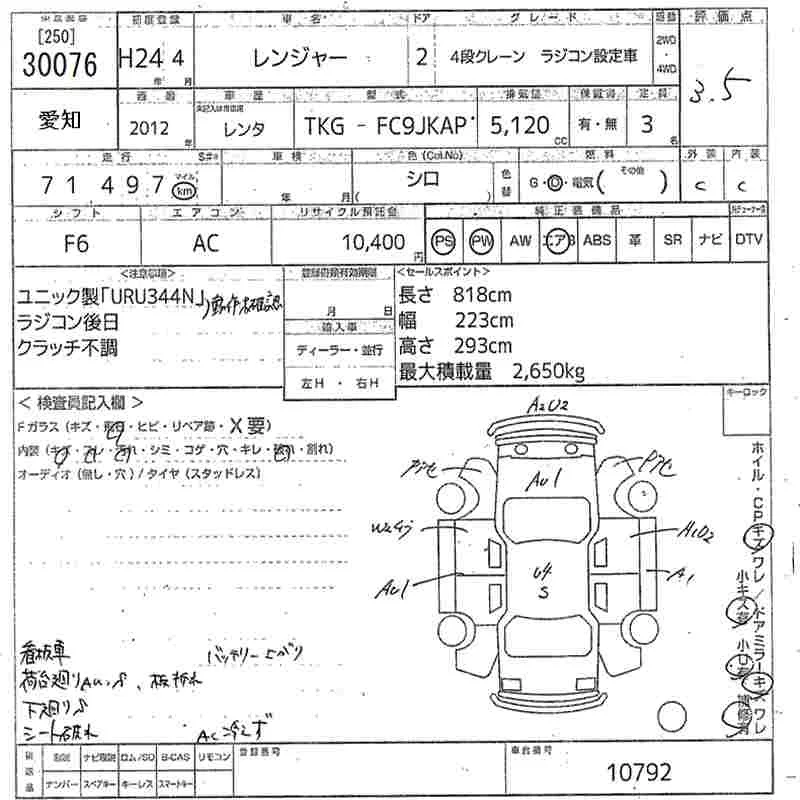 初度登録 車名 ドア グレード 評価点
[250]
30076 H24年 4月 レンジャー 2 4段クレーン ラジコン設定車 2WD・4WD 3.5
車歴 型式 排気量 定員
愛知 2012年 レンタ TKG - FC9JKAP 5,120cc 有・無 3名
走行 車検 色(Col.No) 燃料 その他 外装 内装
71497 マイル km 年 月 シロ 色替 G・D・電気( ) C C
シフト エアコン リサイクル預託金 純正装備品
F6 AC 10,400円 PS PW AW エアB ABS 革 SR ナビ DTV
<注意事項> <セールスポイント>
ユニック製「URU344N」動作未確認
ラジコン後日
クラッチ不調
月 日
輸入車
ディーラー・並行
左H・右H
長さ 818cm
幅 223cm
高さ 293cm
最大積載量 2,650kg
キーロック
<検査員記入欄>
Fガラス(キズ・飛石・ヒビ・リペア跡・X要)
内装(キズ・スレ・汚れ・シミ・コゲ・穴・キレ・破れ・割れ)
オーディオ(無し・穴)/タイヤ(スタッドレス)
A2U2
AU1
A1U2
AU1
A1
U4
S
ホイル・CPキズワレ/ドアミラーキズワレ
看板車 バッテリー上がり
荷台廻りAU.S、板折れ
下廻りS
シート破れ AC冷えず
ナビ取説 ロム/SD B-CAS リモコン
ナンバー スペアキー キーレス スマートキー
登録番号
車台番号
10792